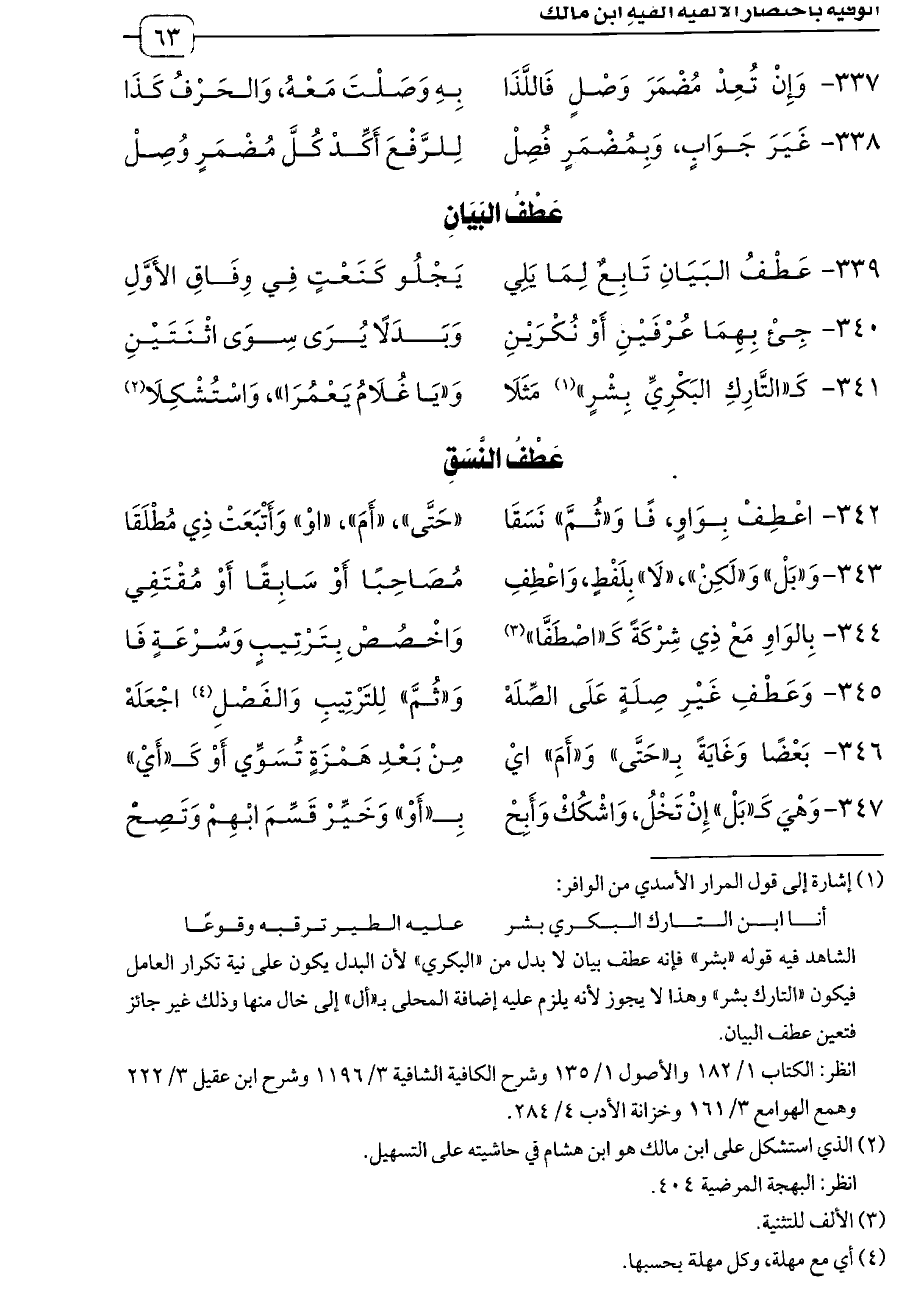 الوفية باختصار الألفية ألفية ابن مالك
٦٣
٣٣٧- وَإِنْ تُعِدْ مُضْمَرَ وَصْلٍ فَاللَّذَا بِهِ وَصَلْتَ مَعْهُ، وَالحَرْفُ كَذَا
٣٣٨- غَيْرَ جَوَابٍ، وَبِمُضْمَرٍ فُصِلْ لِلرَّفْعِ أَكِّدْ كُلَّ مُضْمَرٍ وُصِلْ
عَطْفُ البَيَانِ
٣٣٩- عَطْفُ البَيَانِ تَابِعٌ لِمَا يَلِي يَجْلُو كَنَعْتٍ فِي وِفَاقِ الأَوَّلِ
٣٤٠- جِئْ بِهِمَا عُرْفَيْنِ أَوْ نُكْرَيْنِ وَبَدَلًا يُرَى سِوَى اثْنَتَيْنِ
٣٤١- كَـ«التَّارِكِ البَكْرِيِّ بِشْرٍ»(١) مَثَلَا وَ«يَا غُلَامُ يَعْمُرَا»، وَاسْتُشْكِلَا(٢)
عَطْفُ النَّسَقِ
٣٤٢- اعْطِفْ بِوَاوٍ، فَا وَ«ثُمَّ» نَسَقَا «حَتَّى»، «أَمَ»، «اوْ» وَأَتْبَعَتْ ذِي مُطْلَقَا
٣٤٣- وَ«بَلْ» وَ«لَكِنْ»، «لَا» بِلَفْظٍ، وَاعْطِفِ مُصَاحِبًا أَوْ سَابِقًا أَوْ مُقْتَفِي
٣٤٤- بِالوَاوِ مَعْ ذِي شِرْكَةً كَـ«اصْطَفَّا»(٣) وَاخْصُصْ بِتَرْتِيبٍ وَسُرْعَةٍ فَا
٣٤٥- وَعَطْفِ غَيْرِ صِلَةٍ عَلَى الصِّلَهْ وَ«ثُمَّ» لِلتَّرْتِيبِ وَالفَصْلِ(٤) اجْعَلَهْ
٣٤٦- بَعْضًا وَغَايَةً بِـ«حَتَّى» وَ«أَمَ» ايْ مِنْ بَعْدِ هَمْزَةٍ تُسَوِّي أَوْ كَـ«أَيْ»
٣٤٧- وَهْيَ كَـ«بَلْ» إِنْ تَخْلُ، وَاشْكُكْ وَأَبِحْ بِـ«أَوْ» وَخَيِّرْ قَسِّمَ ابْهِمْ وَتَصِحْ
(١) إشارة إلى قول المرار الأسدي من الوافر:
أنا ابن التارك البكري بشر عليه الطير ترقبه وقوعًا
الشاهد فيه قوله «بشر» فإنه عطف بيان لا بدل من «البكري» لأن البدل يكون على نية تكرار العامل
فيكون «التارك بشر» وهذا لا يجوز لأنه يلزم عليه إضافة المحلى بـ«أل» إلى خال منها وذلك غير جائز
فتعين عطف البيان.
انظر: الكتاب ١/ ١٨٢ والأصول ١/ ١٣٥ وشرح الكافية الشافية ٣/ ١١٩٦ وشرح ابن عقيل ٣/ ٢٢٢
وهمع الهوامع ٣/ ١٦١ وخزانة الأدب ٤/ ٢٨٤.
(٢) الذي استشكل على ابن مالك هو ابن هشام في حاشيته على التسهيل.
انظر: البهجة المرضية ٤٠٤.
(٣) الألف للتثنية.
(٤) أي مع مهلة، وكل مهلة بحسبها.